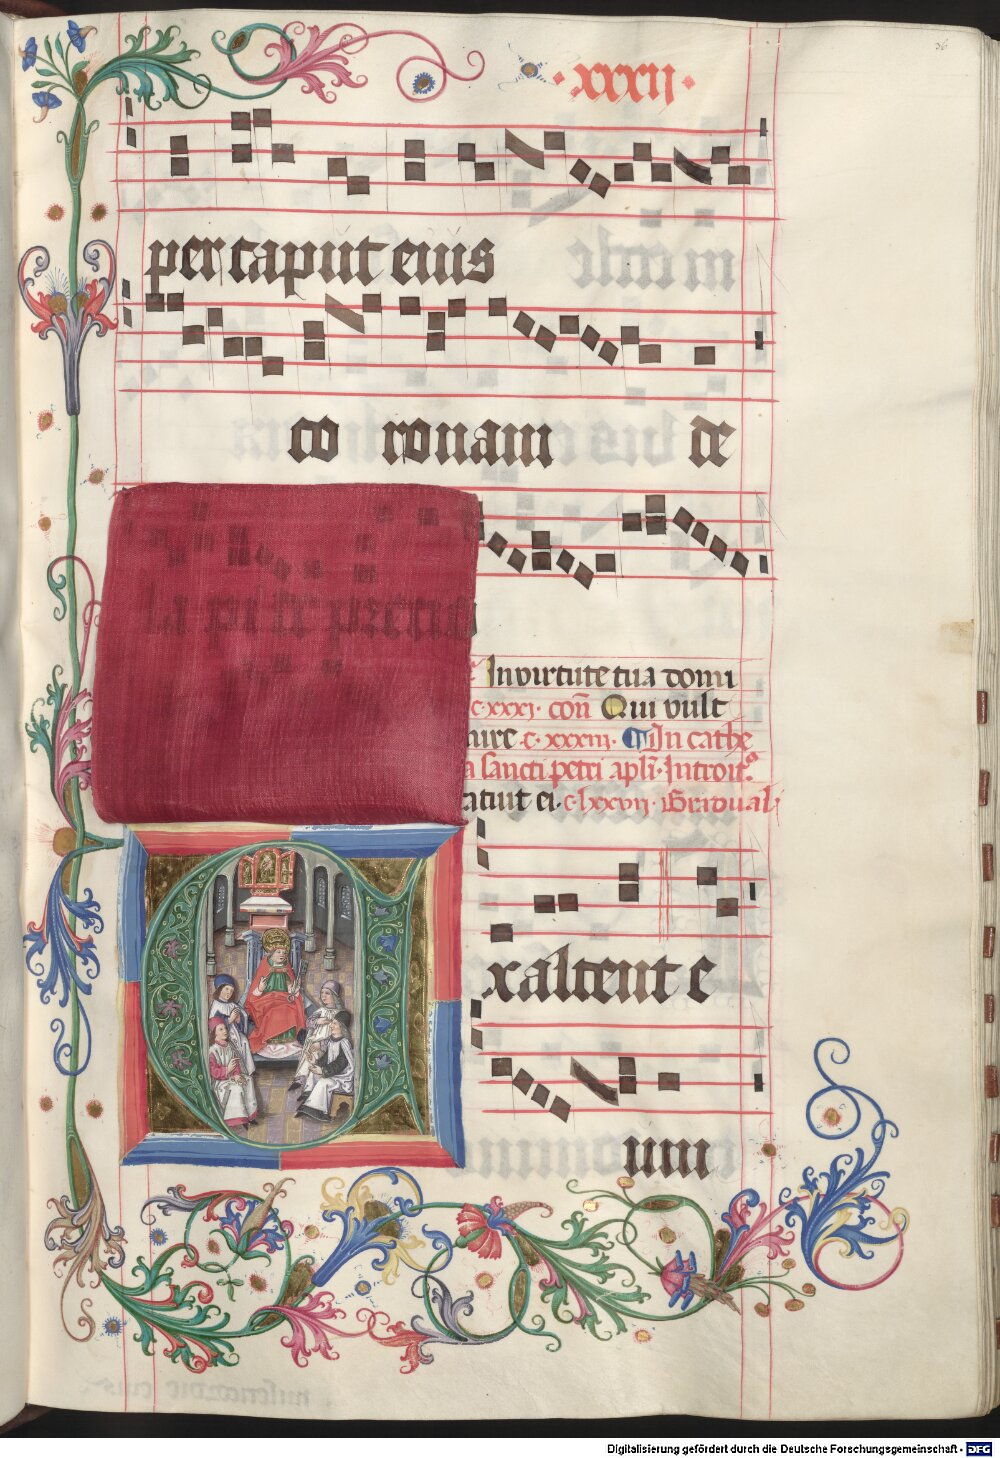 26
·xxxii·
per caput eius
co ronam de
Invirtute tua domi
c·xxxi· coñ Qui vult
nire c· xxxiii· ¶ In cathe
a sancti petri apl̄i· Introit9
atuit ei· c·lxxvii· Graduale
xaltent e
um
Digitalisierung gefördert durch die Deutsche Forschungsgemeinschaft - DFG